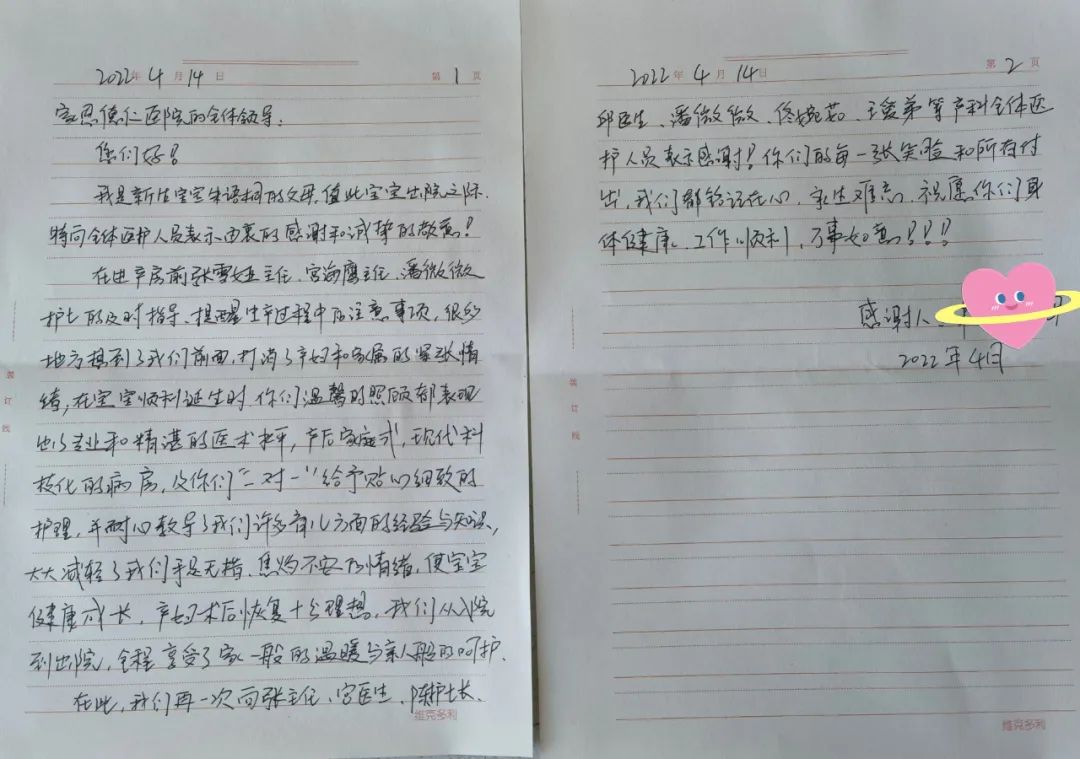 2022年 4月 14日 第 1 页
家恩德仁医院的全体领导:
您们好!
我是新生宝宝朱语桐的父母,值此宝宝出院之际,
特向全体医护人员表示由衷的感谢和诚挚的敬意!
在进产房前张雪娅主任、宫海鹰主任、潘微微
护士的及时指导、提醒生产过程中的注意事项,很多
地方想到了我们前面,打消了产妇和家属的紧张情
绪,在宝宝顺利诞生时,你们温馨的照顾都表现
出了专业和精湛的医术水平,产后家庭式,现代科
技化的病房,及你们“二对一”给予贴心细致的
护理,并耐心教导了我们许多育儿方面的经验与知识,
大大减轻了我们手足无措、焦灼不安的情绪,使宝宝
健康成长,产妇术后恢复十分理想,我们从入院
到出院,全程享受了家一般的温暖与亲人般的呵护.
在此,我们再一次向张主任、宫医生、陈护士长、
维克多利
2022年 4月 14日 第 2 页
邱医生、潘微微、佟婉茹、王爱弟等产科全体医
护人员表示感谢!你们的每一张笑脸和所有付
出,我们都铭记在心,永生难忘.祝愿你们身
体健康、工作顺利,万事如意!!!!
感谢人:
2022年4月
维克多利
装
订
线
装
订
线